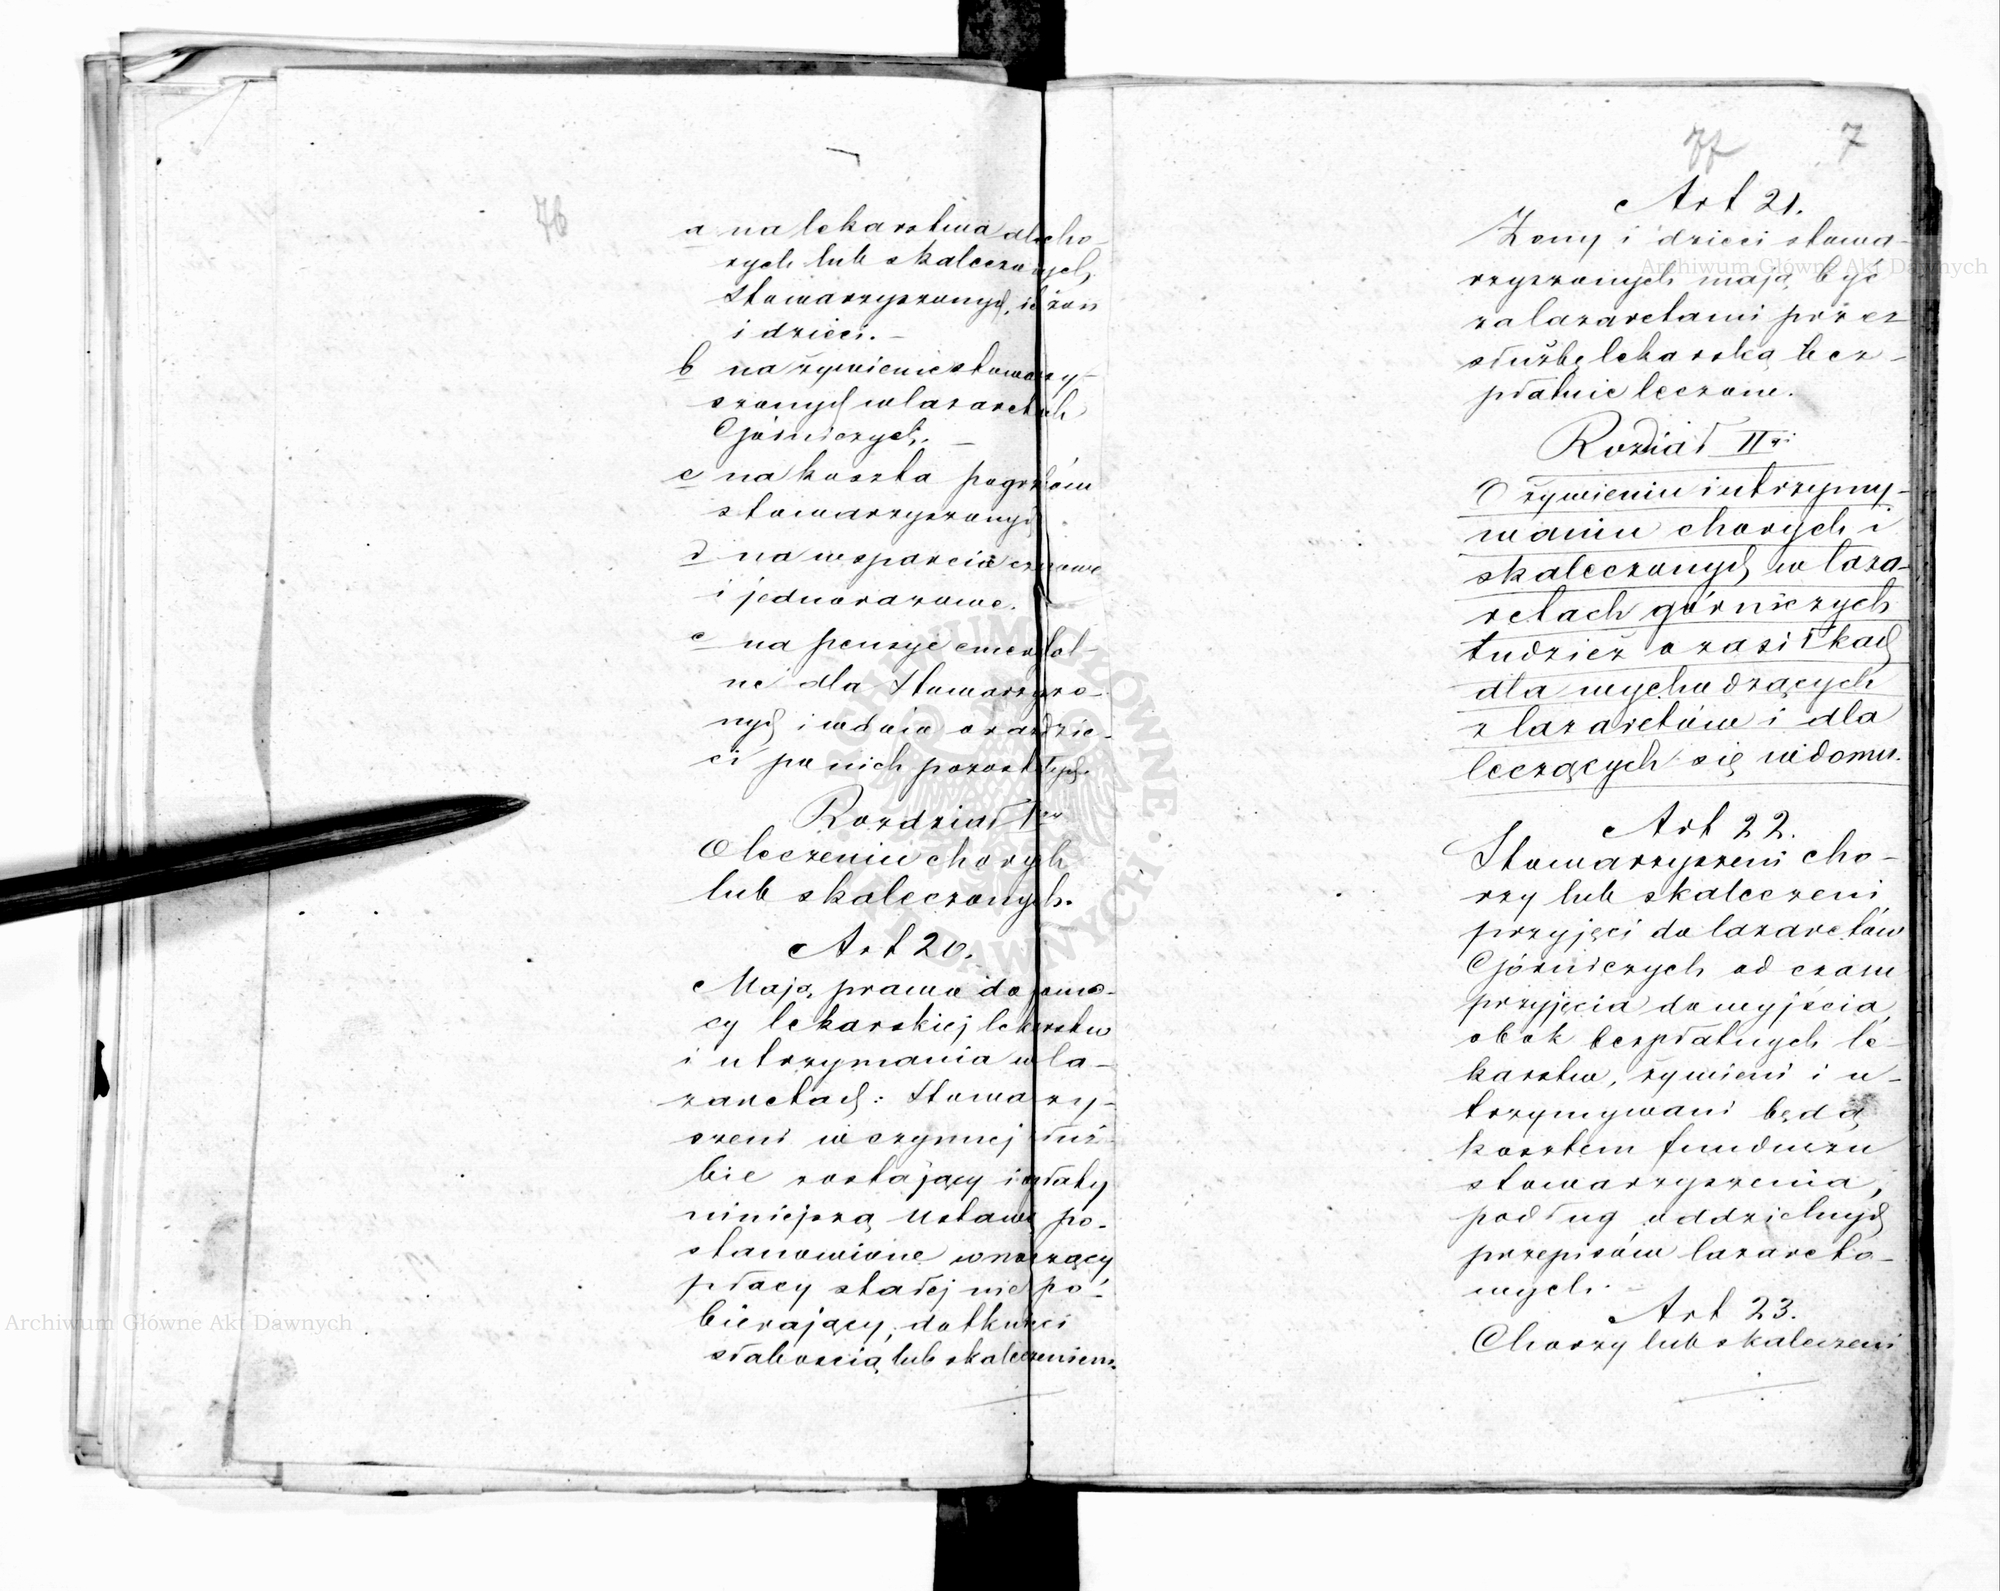 76
a na lekarstwa dla cho-
rych lub skaleczonych
Stowarzyszonych, ich żon
i dzieci. –
b na żywienie stowarzy-
szonych w lazaretach
Górniczych. –
c na koszta pogrzebów
stowarzyszonych
d na wsparcia czasowe
i jednorazowe.
e na pensye emerytal-
ne dla Stowarzyszo-
nych i wdów oraz dzie-
ci po nich pozostałych.
Rozdział Iszy
O leczeniu chorych
lub skaleczonych.
Art 20.
Mają prawo do pomo-
cy lekarskiej lekarstw
i utrzymania w la-
zaretach: Stowarzy-
szeni w czynnej służ-
bie zostający i opłaty
niniejszą Ustawą po-
stanowione wnoszący
płacy stałej nie po-
bierający, dotknięci
słabością lub skaleczeniem.
77 7
Art 21.
Żony i dzieci stowa-
rzyszonych mają być
za lazaretami przez
służbę lekarską bez-
płatnie leczone.
Rozdział IIgi
O żywieniu i utrzymy-
waniu chorych i
skaleczonych w laza-
retach górniczych
tudzież o zasiłkach
dla wychodzących
z lazaretów i dla
leczących się w domu.
Art 22.
Stowarzyszeni cho-
rzy lub skaleczeni
przyjęci do lazaretów
Górniczych od czasu
przyjęcia do wyjścia,
obok bezpłatnych le-
karstw, żywieni i u-
trzymywani będą
kosztem funduszu
stowarzyszenia,
podług oddzielnych
przepisów lazareto-
wych. –
Art 23.
Chorzy lub skaleczeni
Archiwum Główne Akt Dawnych
Archiwum Główne Akt Dawnych
ARCHIWUM GŁÓWNE AKT DAWNYCH